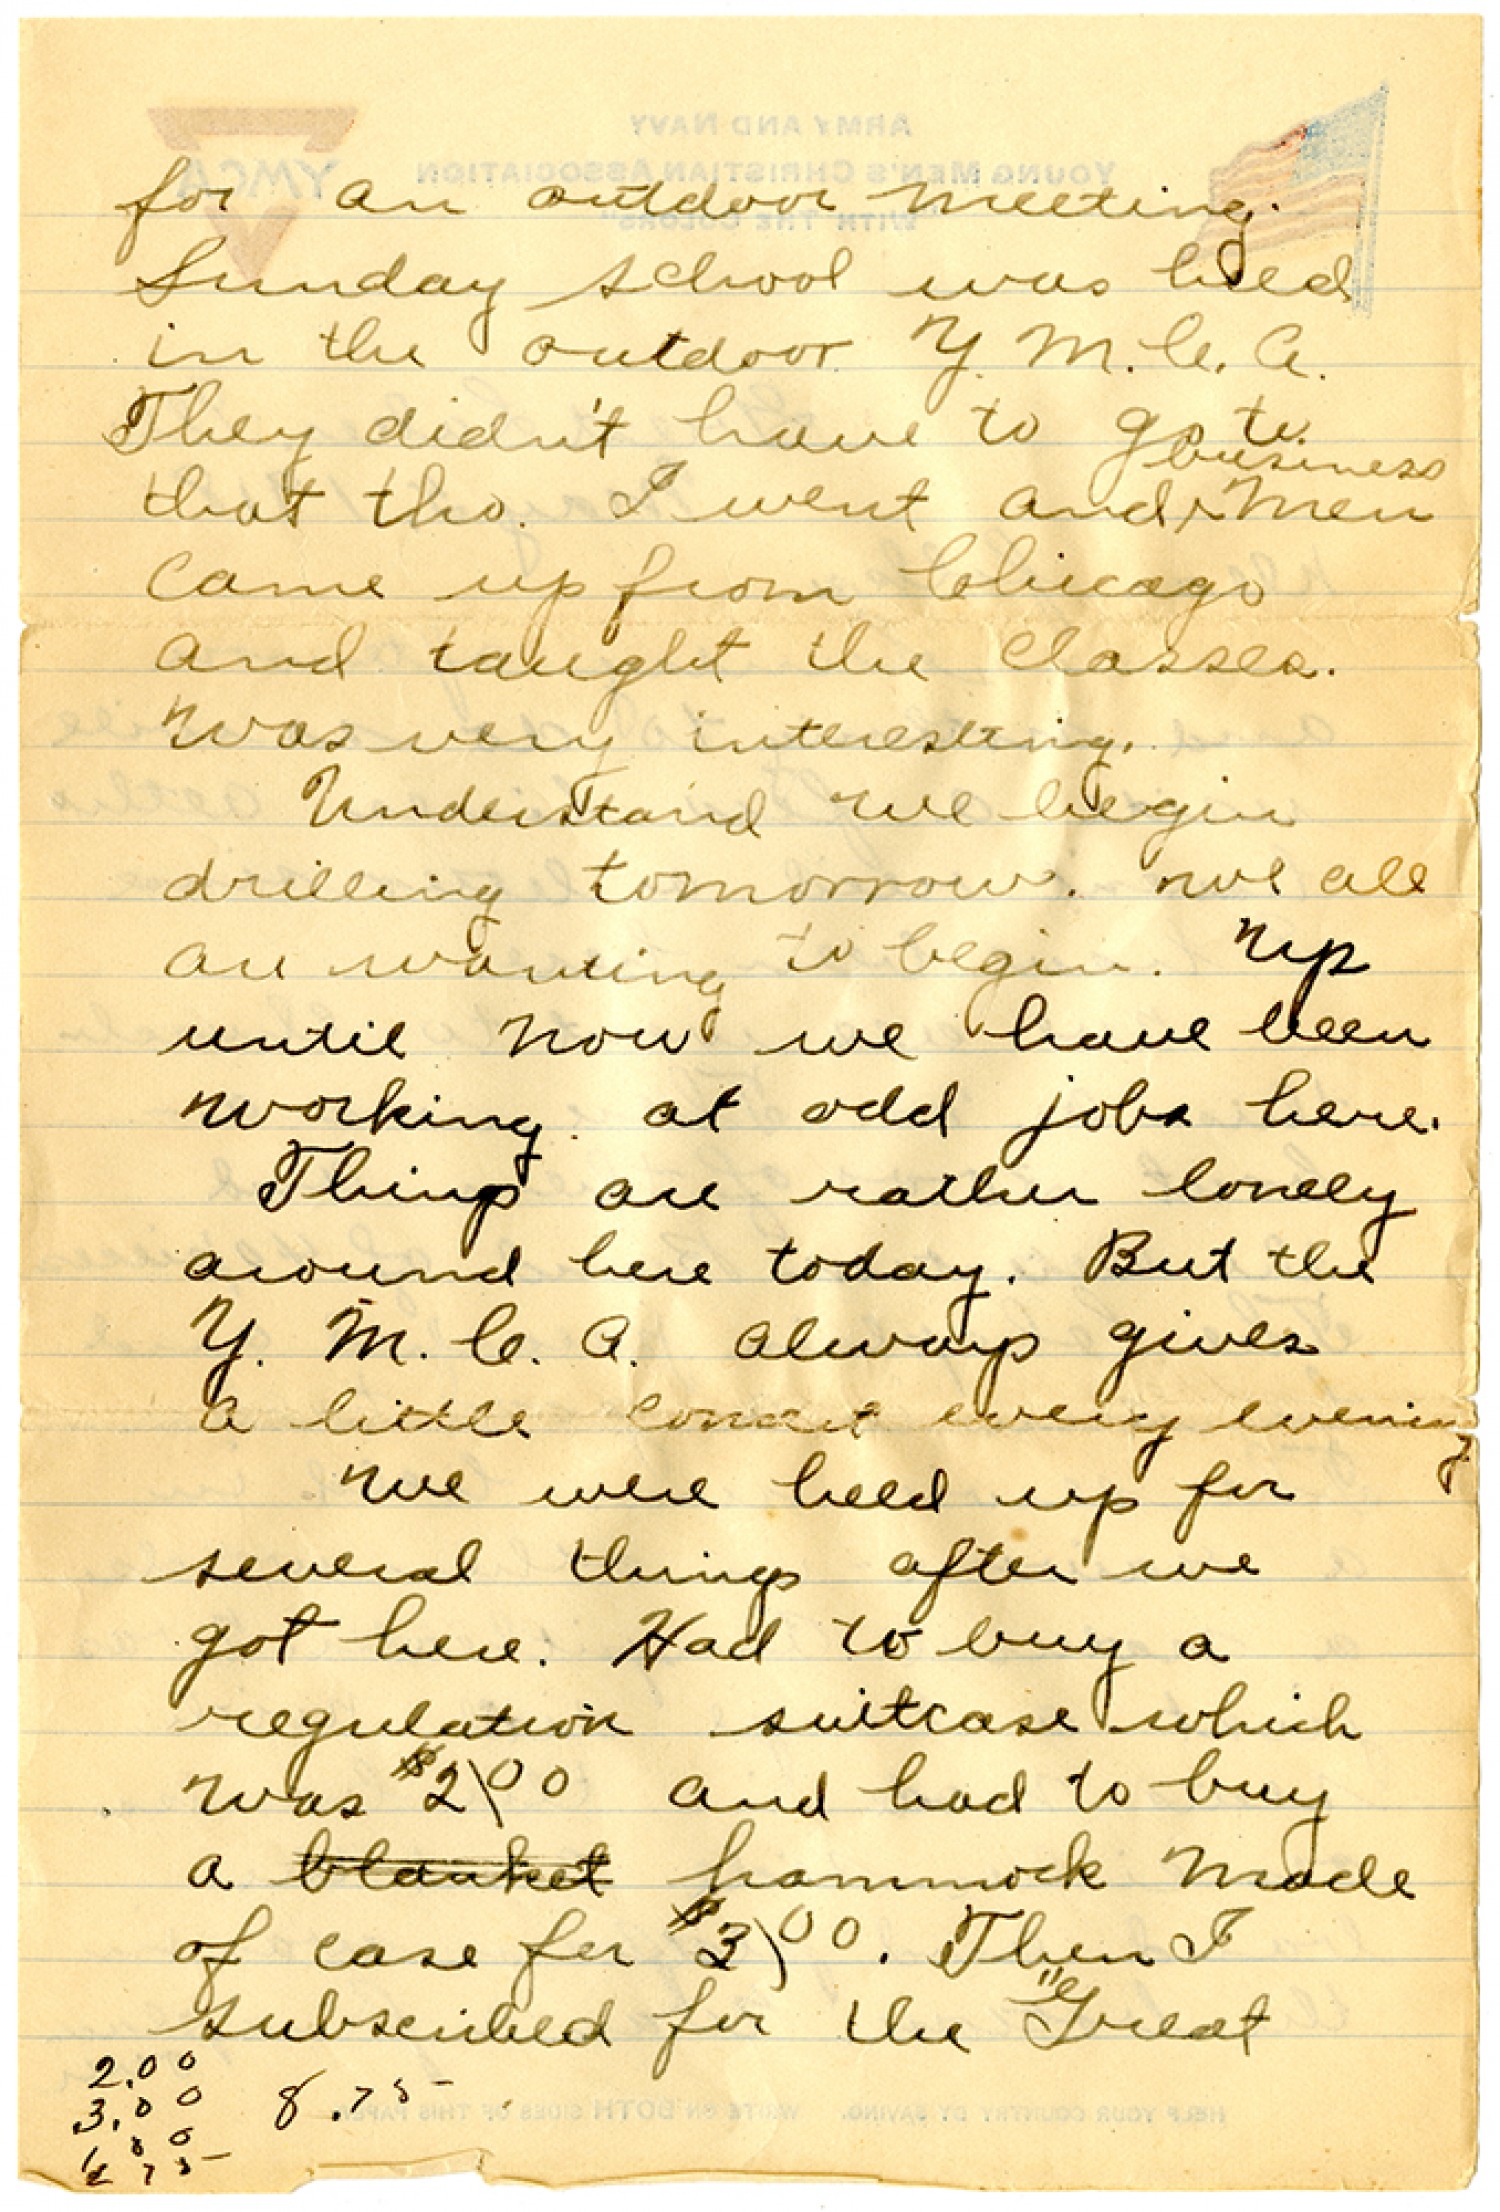 for an outdoor meeting.
Sunday school was held
in the outdoor Y. M. C. A.
They didn't have to go to
business
that tho. I went and men
came up from Chicago
and taught the classes.
Was very interesting.
Understand we begin
drilling tomorrow. We all
are wanting to begin. Up
until now we have been
working at odd jobs here.
Things are rather lonely
around here today. But the
Y. M. C. A. always gives
a little concert every evening
We were held up for
several things after we
got here. Had to buy a
regulation suitcase which
was $2\00 and had to buy
a blanket hammock made
of case for $3\00. Then I
subscribed for the "Great
2.00
3.00 8.75
ARMY AND NAVY
YOUNG MEN'S CHRISTIAN ASSOCIATION
"WITH THE COLORS"
YMCA
HELP YOUR COUNTRY BY SAVING. WRITE ON BOTH SIDES OF THIS PAPER